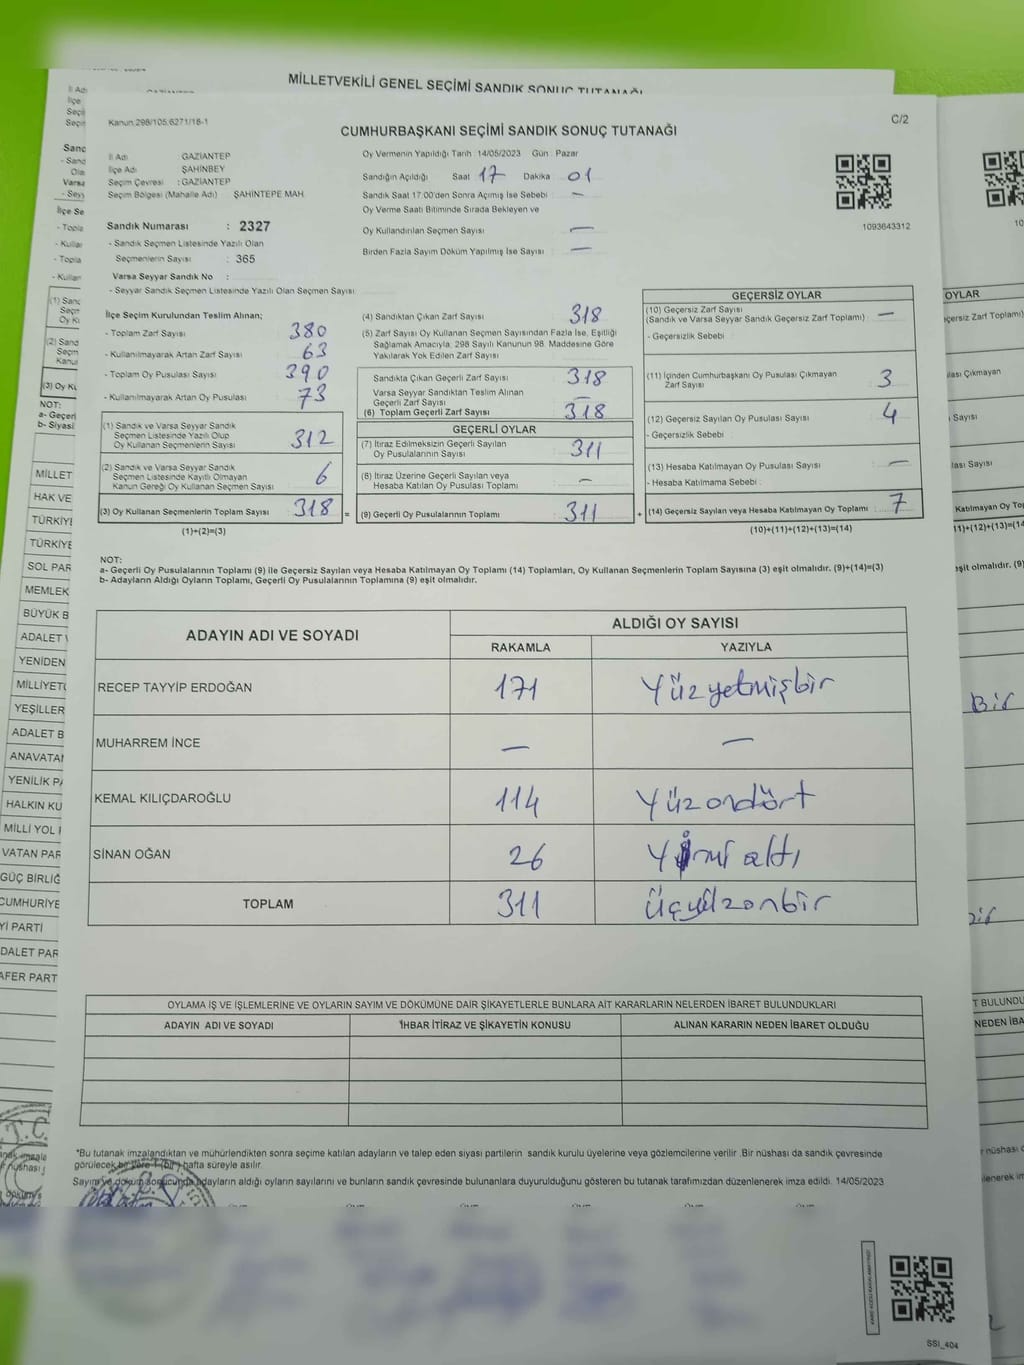 MİLLETVEKİLİ GENEL SEÇİMİ SANDIK SONUÇ TUTANAĞI
Kanun.298/105,6271/18-1
C/2
CUMHURBAŞKANI SEÇİMİ SANDIK SONUÇ TUTANAĞI
İl Adı GAZİANTEP
İlçe Adı ŞAHİNBEY
Seçim Çevresi : GAZİANTEP
Seçim Bölgesi (Mahalle Adı) ŞAHİNTEPE MAH.
Sandık Numarası : 2327
- Sandık Seçmen Listesinde Yazılı Olan
Seçmenlerin Sayısı : 365
Varsa Seyyar Sandık No :
- Seyyar Sandık Seçmen Listesinde Yazılı Olan Seçmen Sayısı
Oy Vermenin Yapıldığı Tarih : 14/05/2023 Gün : Pazar
Sandığın Açıldığı Saat 17 Dakika 01
Sandık Saat 17:00'den Sonra Açımış İse Sebebi : -
Oy Verme Saati Bitiminde Sırada Bekleyen ve
Oy Kullandırılan Seçmen Sayısı —
Birden Fazla Sayım Döküm Yapılmış İse Sayısı : —
1093643312
İlçe Seçim Kurulundan Teslim Alınan;
- Toplam Zarf Sayısı 380
- Kullanılmayarak Artan Zarf Sayısı 63
- Toplam Oy Pusulası Sayısı 390
- Kullanılmayarak Artan Oy Pusulası 73
(1) Sandık ve Varsa Seyyar Sandık
Seçmen Listesinde Yazılı Olup
Oy Kullanan Seçmenlerin Sayısı 312
(2) Sandık ve Varsa Seyyar Sandık
Seçmen Listesinde Kayıtlı Olmayan
Kanun Gereği Oy Kullanan Seçmen Sayısı 6
(3) Oy Kullanan Seçmenlerin Toplam Sayısı 318 =
(1)+(2)=(3)
(4) Sandıktan Çıkan Zarf Sayısı 318
(5) Zarf Sayısı Oy Kullanan Seçmen Sayısından Fazla İse, Eşitliği
Sağlamak Amacıyla, 298 Sayılı Kanunun 98. Maddesine Göre
Yakılarak Yok Edilen Zarf Sayısı
Sandıkta Çıkan Geçerli Zarf Sayısı 318
Varsa Seyyar Sandıktan Teslim Alınan
Geçerli Zarf Sayısı —
(6) Toplam Geçerli Zarf Sayısı 318
GEÇERLİ OYLAR
(7) İtiraz Edilmeksizin Geçerli Sayılan
Oy Pusulalarının Sayısı 311
(8) İtiraz Üzerine Geçerli Sayılan veya
Hesaba Katılan Oy Pusulası Toplamı —
(9) Geçerli Oy Pusulalarının Toplamı 311 +
GEÇERSİZ OYLAR
(10) Geçersiz Zarf Sayısı
(Sandık ve Varsa Seyyar Sandık Geçersiz Zarf Toplamı) —
- Geçersizlik Sebebi :
(11) İçinden Cumhurbaşkanı Oy Pusulası Çıkmayan
Zarf Sayısı 3
(12) Geçersiz Sayılan Oy Pusulası Sayısı 4
- Geçersizlik Sebebi :
(13) Hesaba Katılmayan Oy Pusulası Sayısı —
- Hesaba Katılmama Sebebi :
(14) Geçersiz Sayılan veya Hesaba Katılmayan Oy Toplamı 7
(10)+(11)+(12)+(13)=(14)
NOT:
a- Geçerli Oy Pusulalarının Toplamı (9) ile Geçersiz Sayılan veya Hesaba Katılmayan Oy Toplamı (14) Toplamları, Oy Kullanan Seçmenlerin Toplam Sayısına (3) eşit olmalıdır. (9)+(14)=(3)
b- Adayların Aldığı Oyların Toplamı, Geçerli Oy Pusulalarının Toplamına (9) eşit olmalıdır.
ADAYIN ADI VE SOYADI ALDIĞI OY SAYISI
RAKAMLA YAZIYLA
RECEP TAYYİP ERDOĞAN 171 Yüzyetmişbir
MUHARREM İNCE — —
KEMAL KILIÇDAROĞLU 114 Yüzondört
SİNAN OĞAN 26 Yirmi altı
TOPLAM 311 Üçyüzonbir
OYLAMA İŞ VE İŞLEMLERİNE VE OYLARIN SAYIM VE DÖKÜMÜNE DAİR ŞİKAYETLERLE BUNLARA AİT KARARLARIN NELERDEN İBARET BULUNDUKLARI
ADAYIN ADI VE SOYADI İHBAR İTİRAZ VE ŞİKAYETİN KONUSU ALINAN KARARIN NEDEN İBARET OLDUĞU
*Bu tutanak imzalandıktan ve mühürlendikten sonra seçime katılan adayların ve talep eden siyasi partilerin sandık kurulu üyelerine veya gözlemcilerine verilir .Bir nüshası da sandık çevresinde
görülecek bir yere 1 (bir) hafta süreyle asılır.
Sayım ve döküm sonucunda adayların aldığı oyların sayılarını ve bunların sandık çevresinde bulunanlara duyurulduğunu gösteren bu tutanak tarafımızdan düzenlenerek imza edildi. 14/05/2023
SSI_404
MİLLET
HAK VE
TÜRKİYE
TÜRKİYE
SOL PAR
MEMLEK
BÜYÜK B
ADALET
YENİDEN
MİLLİYETÇ
YEŞİLLER
ADALET B
ANAVATA
YENİLİK PA
HALKIN KU
MİLLİ YOL
VATAN PAR
GÜÇ BİRLİĞ
CUMHURİYE
Yİ PARTİ
DALET PAR
AFER PART